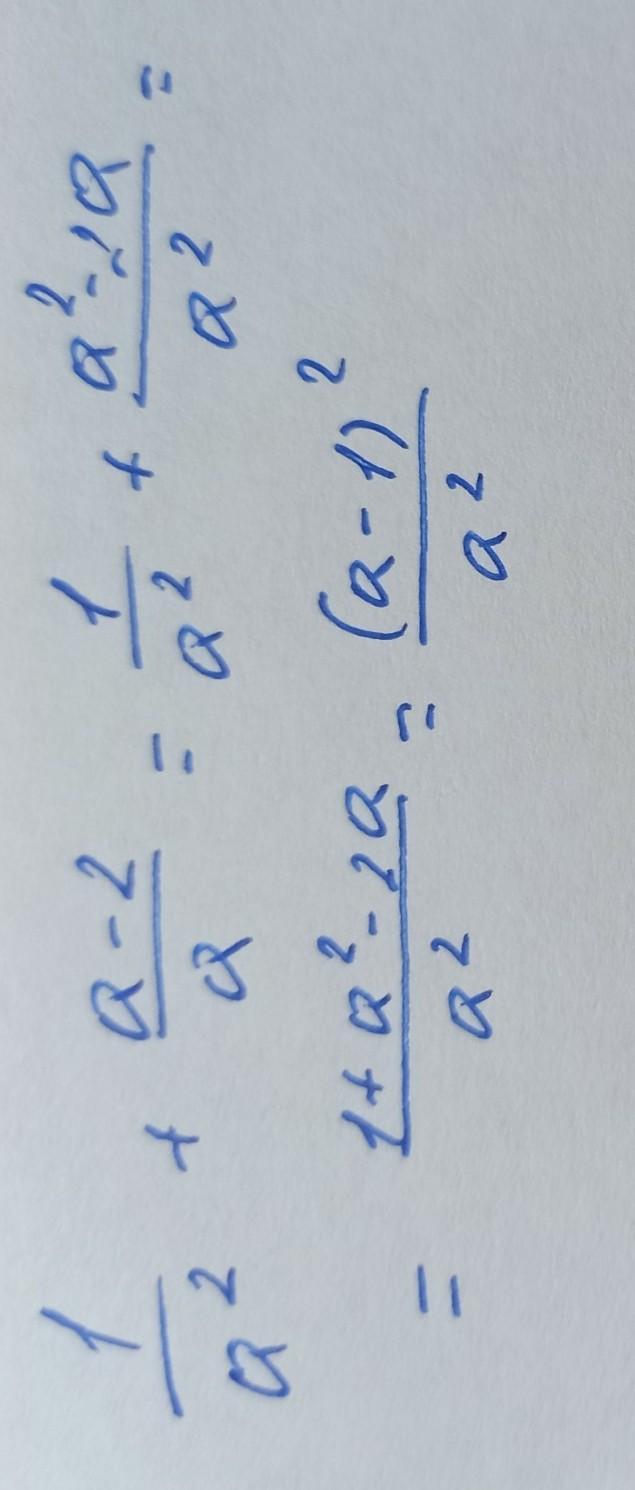 1/a² + (a-2)/a = 1/a² + (a²-2a)/a² =
= (1+a²-2a)/a² = (a-1)²/a²